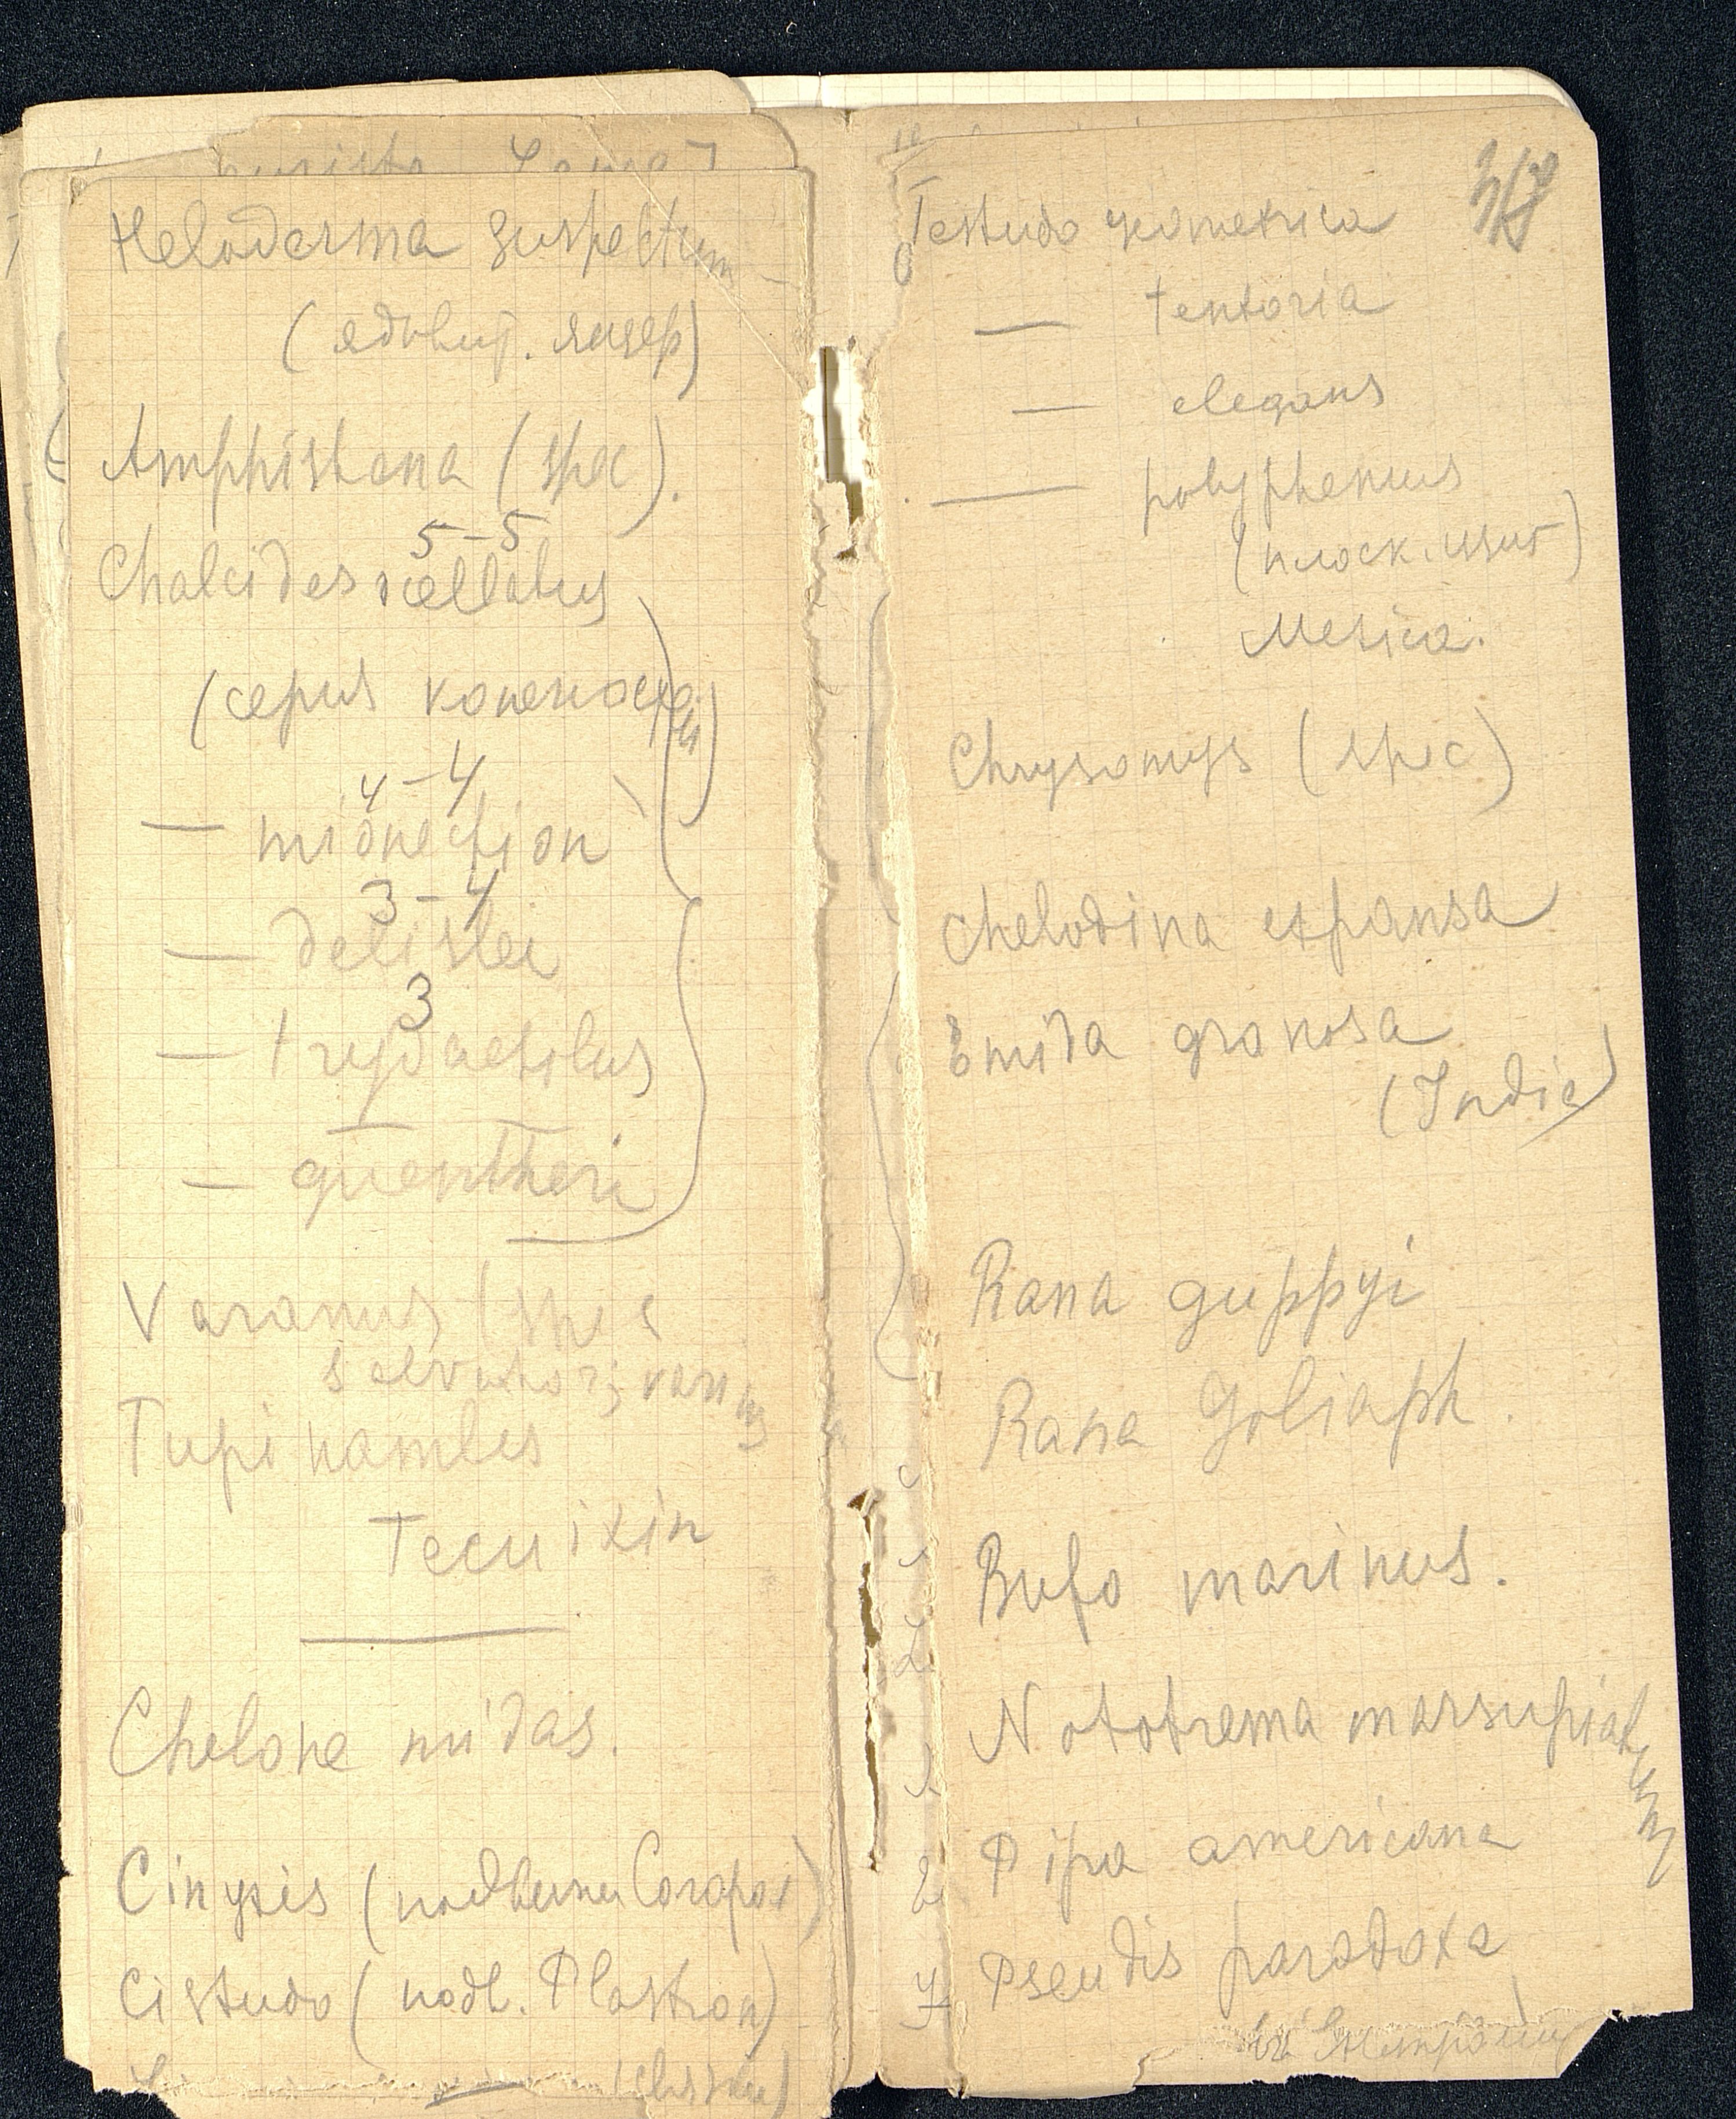 Heloderma suspectum
(ядовит. ящер)
Amphisbena (spec).
5-5
Chalcides ocellatus
(cepus конечностей)
4-4
— mionection
3-4
— delislei
3
— trydactilus
— guentheri
Varanus (spec
salvator; varius
Tupinambis
Tecuixin
Chelone midas.
Cinyxis (подвижн Carapax)
Cistudo (подв. Plastron)
Testudo geometrica
— tentoria
— elegans
— polyphemus
(плоск. щит)
Mexica.
Chrysomys (spec)
Chelodina expansa
Emida granosa
(Indie)
Rana guppyi
Rana Goliaph.
Bufo marinus.
Nototrema marsupiatum
Pipa americana
Pseudis paradoxa